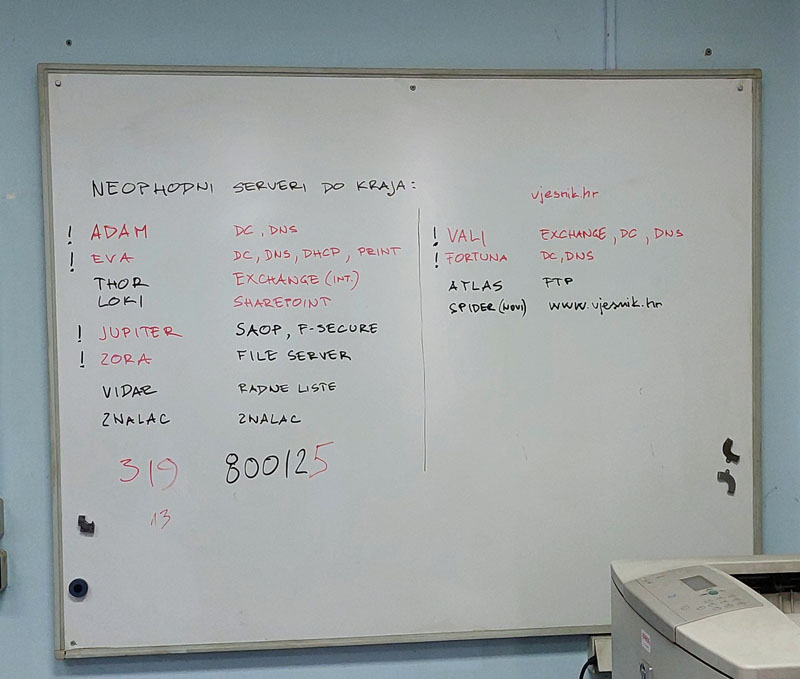 NEOPHODNI SERVERI DO KRAJA:
! ADAM DC, DNS
! EVA DC, DNS, DHCP, PRINT
THOR EXCHANGE (INT.)
LOKI SHAREPOINT
! JUPITER SAOP, F-SECURE
! ZORA FILE SERVER
VIDAR RADNE LISTE
ZNALAC ZNALAC
319 800125
13
vjesnik.hr
! VALI EXCHANGE, DC, DNS
! FORTUNA DC, DNS
ATLAS FTP
SPIDER (NOVI) www.vjesnik.hr